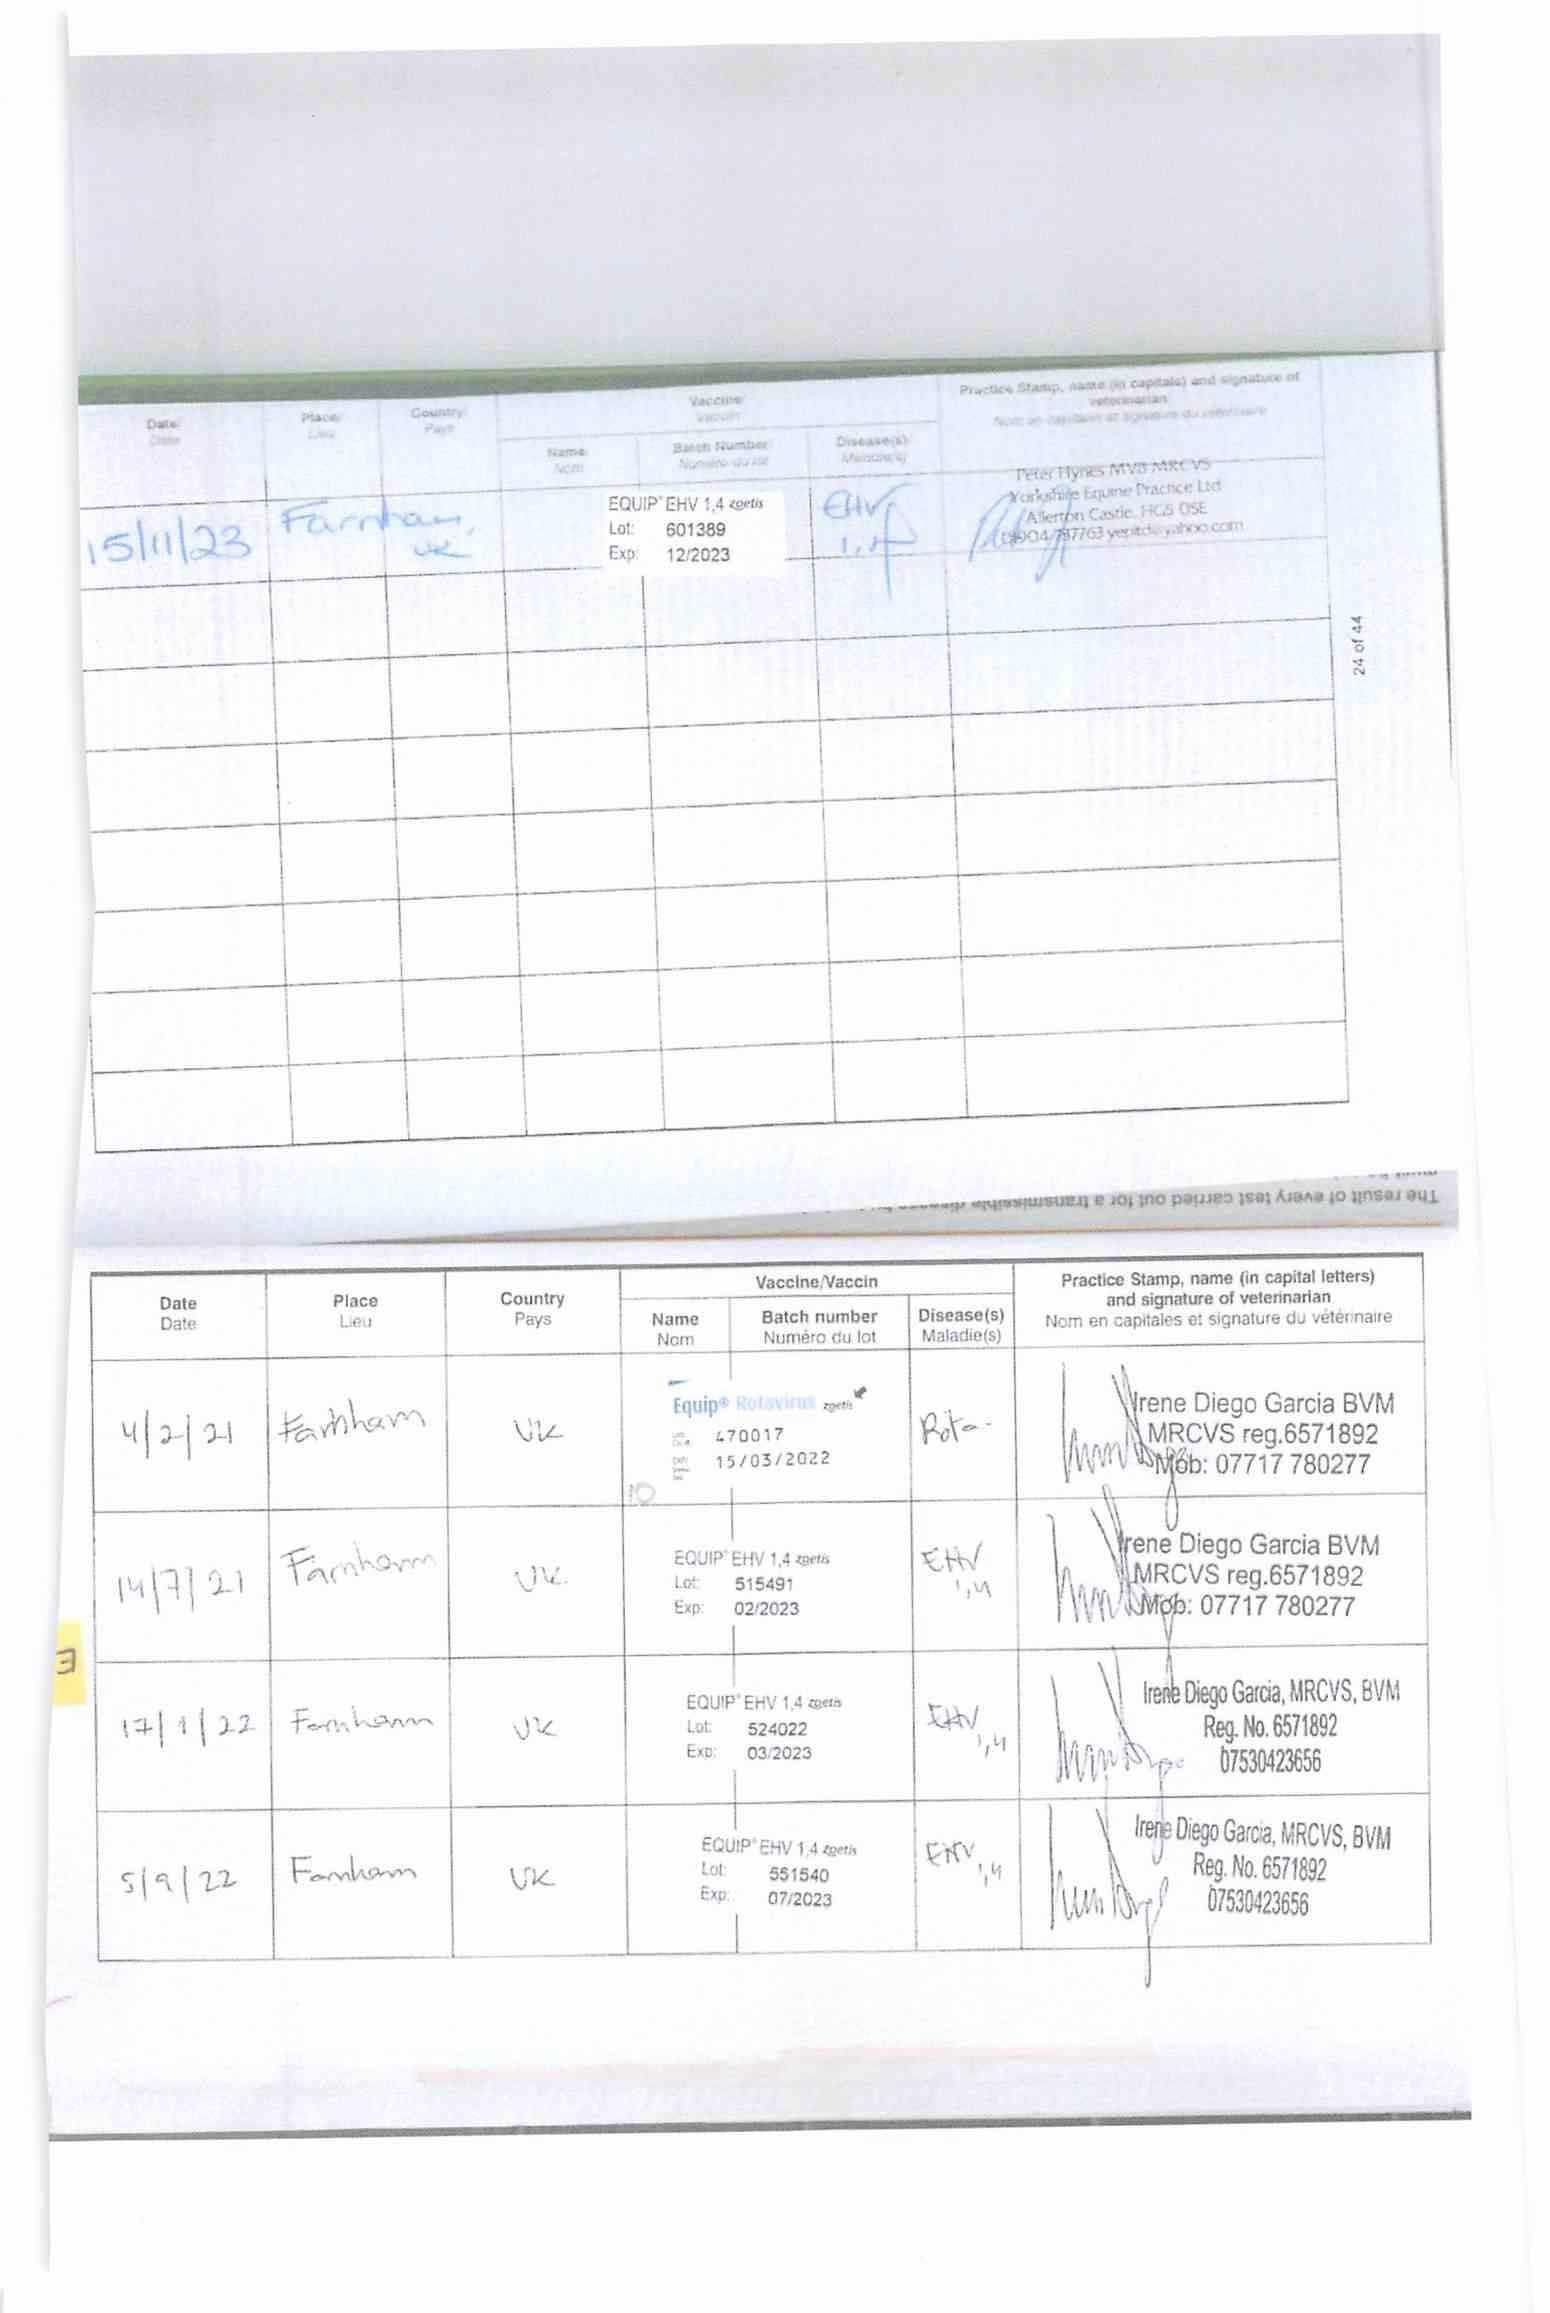 Date Place Country Vaccine Practice Stamp, name (in capitals) and signature of veterinarian
Date Lieu Pays Vaccin Nom en capitales et signature du vétérinaire
Name Batch Number Disease(s)
Nom Numéro du lot Maladie(s)
15/11/23 Farnham, UK
EQUIP® EHV 1,4 zoetis
Lot: 601389
Exp: 12/2023
EHV
1,4
Peter Hynes MVB MRCVS
Yorkshire Equine Practice Ltd
Allerton Castle, HG5 0SE
yepltd@yahoo.com
24 of 44
The result of every test carried out for a transmissible disease
Date Place Country Vaccine/Vaccin Practice Stamp, name (in capital letters)
and signature of veterinarian
Date Lieu Pays Nom en capitales et signature du vétérinaire
Name Batch number Disease(s)
Nom Numéro du lot Maladie(s)
4/2/21 Farnham UK
Equip® Rotavirus zoetis
470017
15/03/2022
Rota-
Irene Diego Garcia BVM
MRCVS reg.6571892
Mob: 07717 780277
14/7/21 Farnham UK
EQUIP® EHV 1,4 zoetis
Lot: 515491
Exp: 02/2023
EHV
1,4
Irene Diego Garcia BVM
MRCVS reg.6571892
Mob: 07717 780277
3
17/1/22 Farnham UK
EQUIP® EHV 1,4 zoetis
Lot: 524022
Exp: 03/2023
EHV
1,4
Irene Diego Garcia, MRCVS, BVM
Reg. No. 6571892
07530423656
5/9/22 Farnham UK
EQUIP® EHV 1,4 zoetis
Lot: 551540
Exp: 07/2023
EHV
1,4
Irene Diego Garcia, MRCVS, BVM
Reg. No. 6571892
07530423656